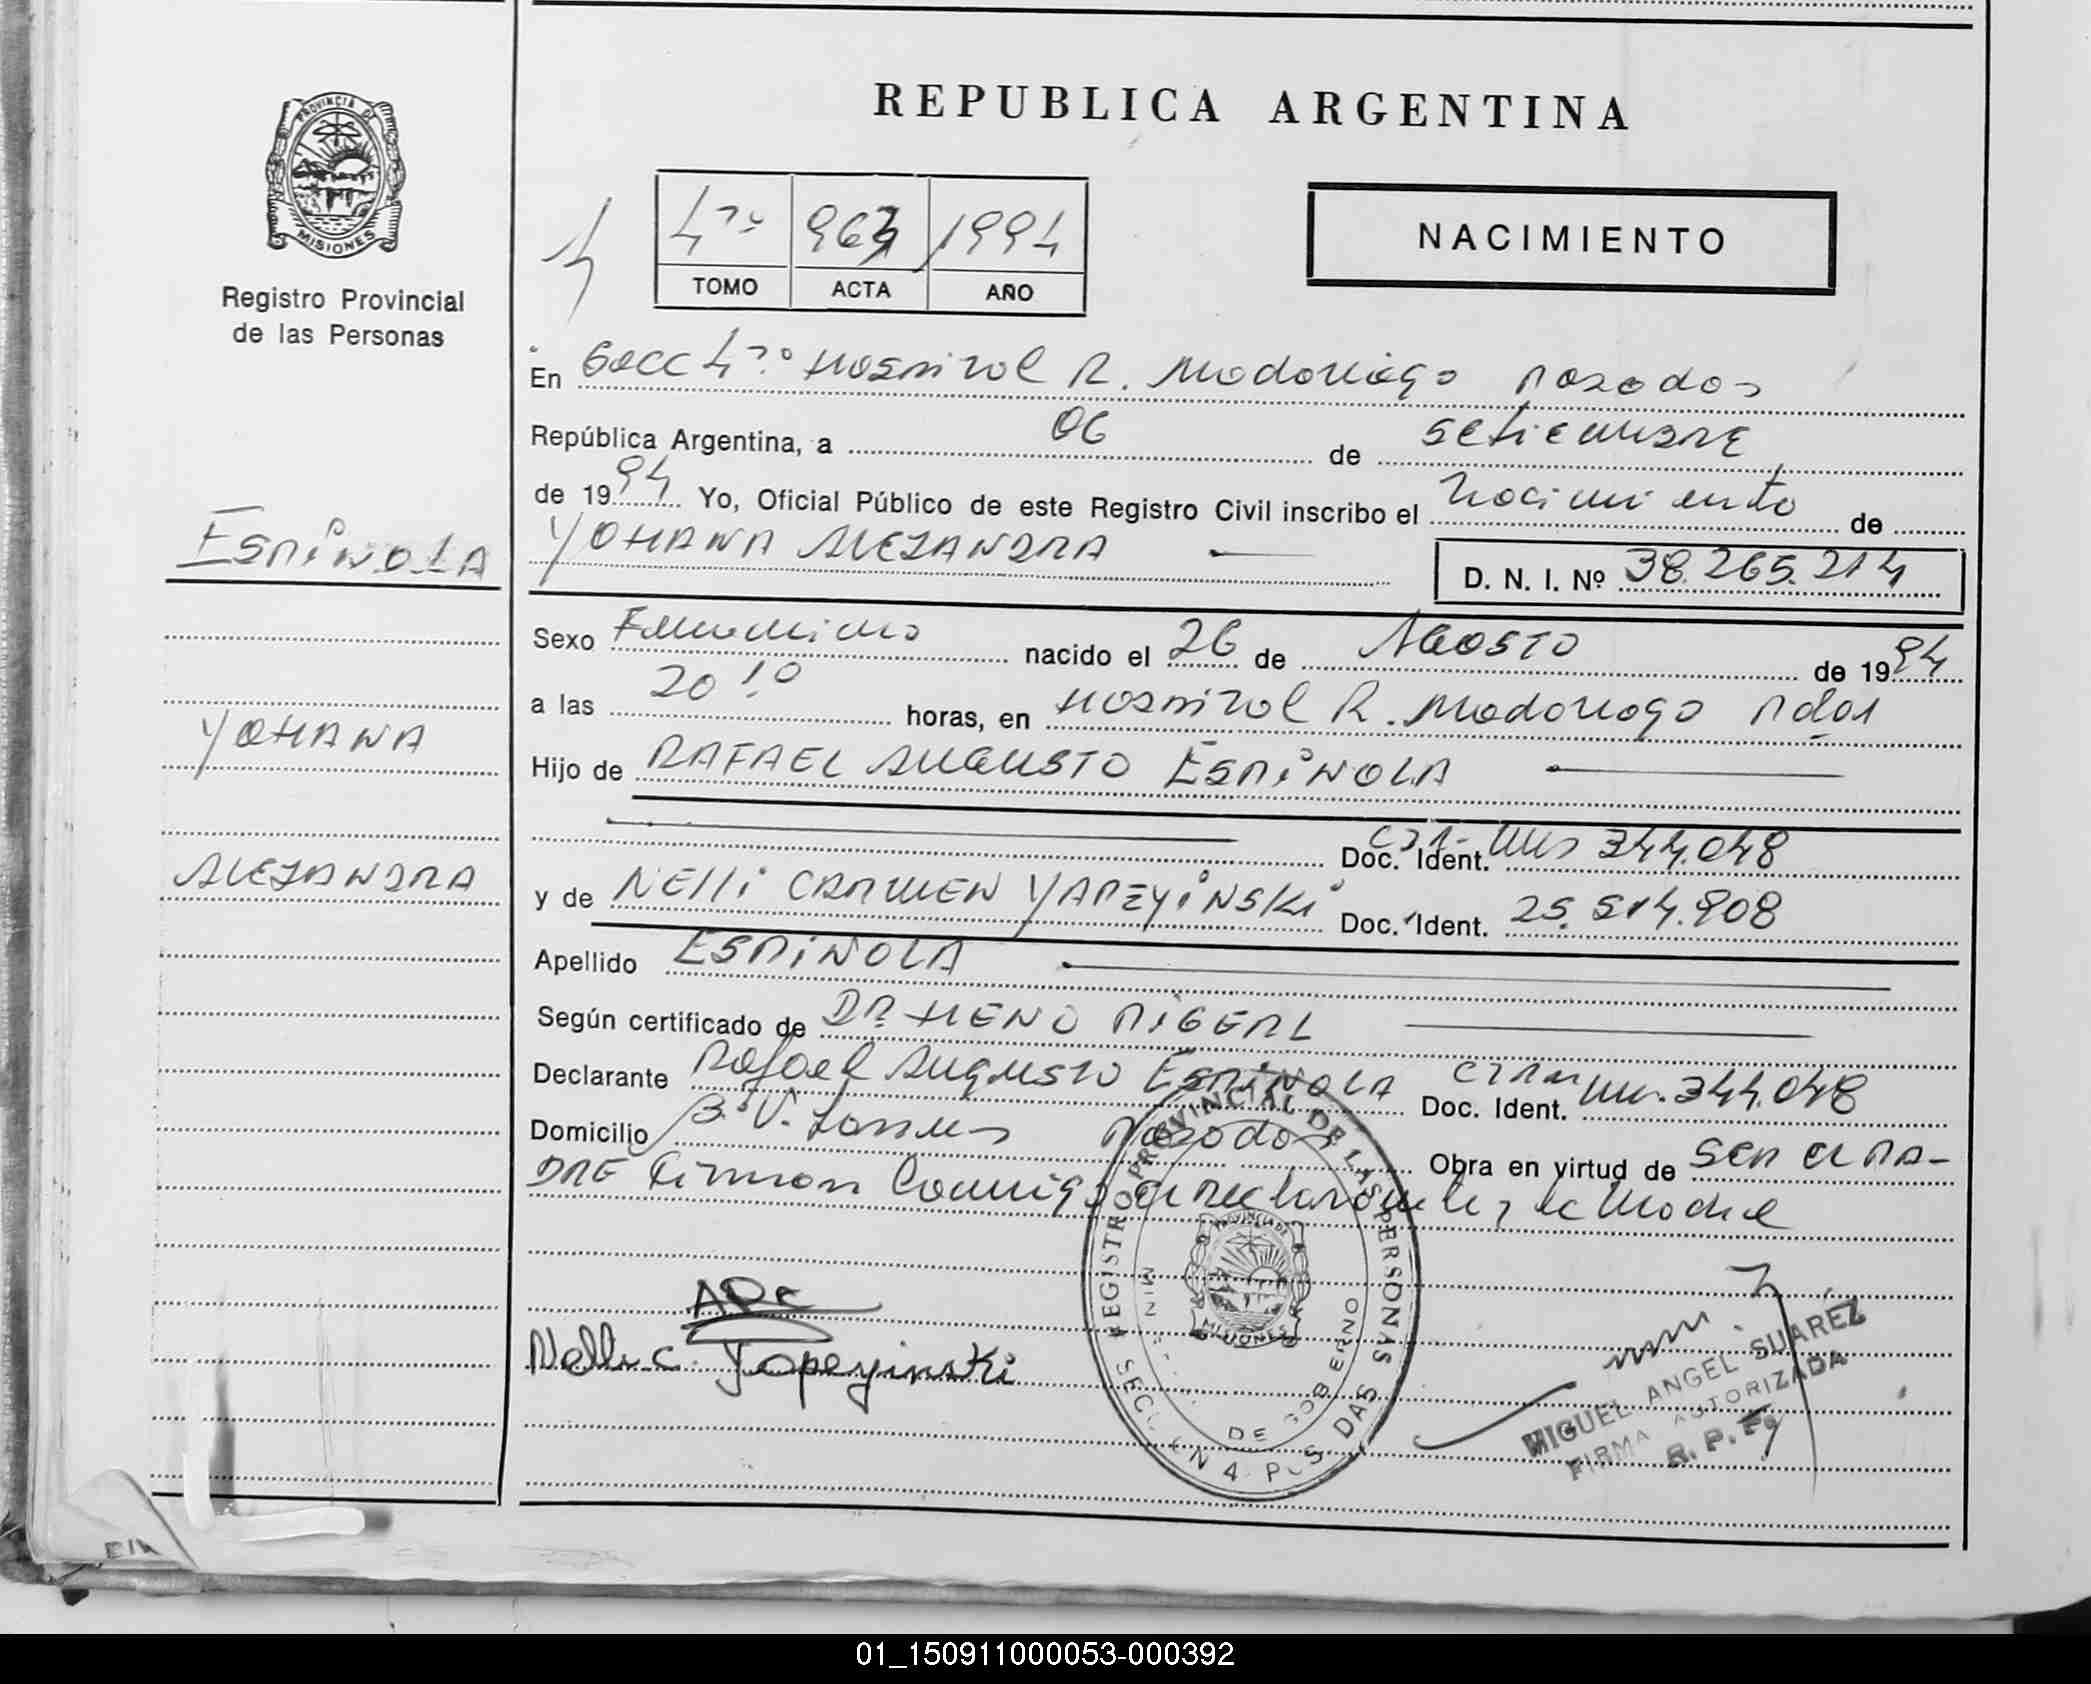 REPUBLICA ARGENTINA
PROVINCIA DE
MISIONES
Registro Provincial
de las Personas
4to 964 1994
TOMO ACTA AÑO
NACIMIENTO
En Secc 4to Hospital R. Madariaga Posadas
República Argentina, a 06 de Setiembre
de 1994 Yo, Oficial Público de este Registro Civil inscribo el Nacimiento de
YOHANA ALEJANDRA D. N. I. Nº 38.265.214
ESPINOLA
Sexo Femenino nacido el 26 de AGOSTO de 1994
a las 20 10 horas, en Hospital R. Madariaga Pdas
YOHANA
Hijo de RAFAEL AUGUSTO ESPINOLA
Doc. Ident. 344.048
ALEJANDRA
y de NElli CARMEN YAPEYINSKi Doc. Ident. 25.514.908
Apellido ESPINOLA
Según certificado de DR HENO
Declarante Rafael Augusto ESPINOLA Doc. Ident. 344.048
Domicilio Posadas Obra en virtud de Ser el PA-
DRE Firman Conmigo el declarante y la Madre
REGISTRO PROVINCIAL DE LAS PERSONAS
PROVINCIA DE
MISIONES
DE GOBERNO
SECCION 4 POSADAS
Nelli C. Yapeyinski
MIGUEL ANGEL SUAREZ
FIRMA AUTORIZADA
R. P. P.
01_150911000053-000392